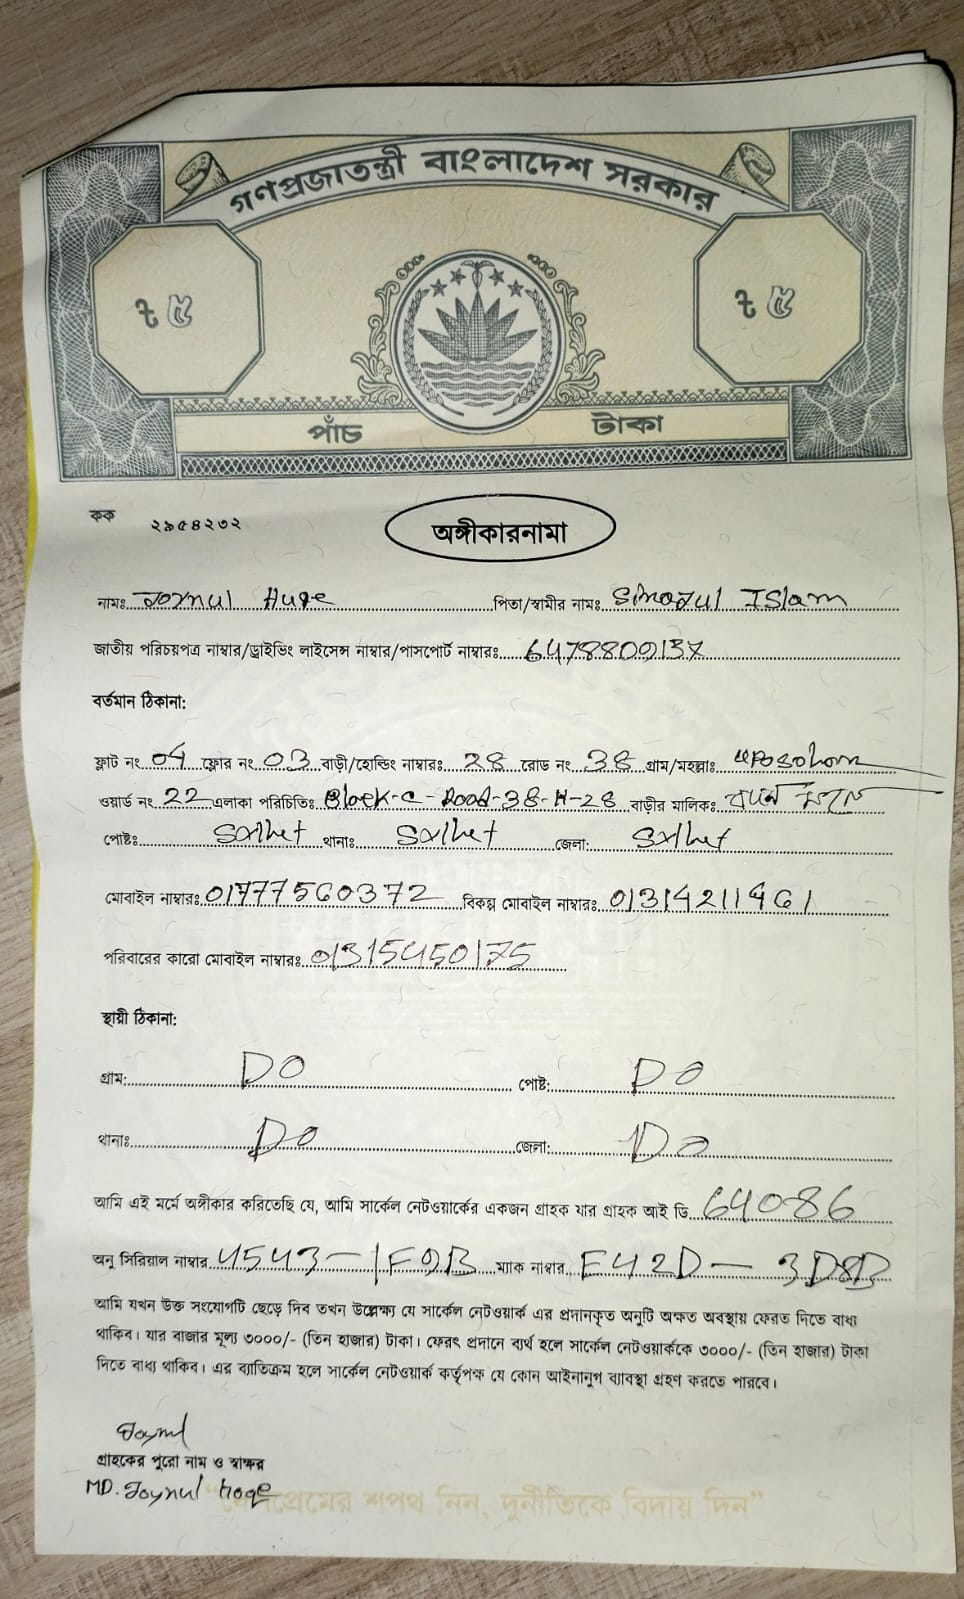 গণপ্রজাতন্ত্রী বাংলাদেশ সরকার
৳ ৫ ৳ ৫
পাঁচ টাকা
কক ২৯৫৪২৩২
অঙ্গীকারনামা
নামঃ Joynul Huqe পিতা/স্বামীর নামঃ Sirazul Islam
জাতীয় পরিচয়পত্র নাম্বার/ড্রাইভিং লাইসেন্স নাম্বার/পাসপোর্ট নাম্বারঃ 6478809137
বর্তমান ঠিকানা:
ফ্লাট নং 04 ফ্লোর নং 03 বাড়ী/হোল্ডিং নাম্বারঃ 28 রোড নং 38 গ্রাম/মহল্লাঃ uposohom
ওয়ার্ড নং 22 এলাকা পরিচিতিঃ Block-C-Road-38-H-28 বাড়ীর মালিকঃ
পোষ্টঃ Sylhet থানাঃ Sylhet জেলা: Sylhet
মোবাইল নাম্বারঃ 01777560372 বিকল্প মোবাইল নাম্বারঃ 01314211461
পরিবারের কারো মোবাইল নাম্বারঃ 01315450175
স্থায়ী ঠিকানা:
গ্রাম: DO পোষ্ট: DO
থানাঃ DO জেলা: DO
আমি এই মর্মে অঙ্গীকার করিতেছি যে, আমি সার্কেল নেটওয়ার্কের একজন গ্রাহক যার গ্রাহক আই ডি 64086
অনু সিরিয়াল নাম্বার 4543-1F9B ম্যাক নাম্বার E42D-
আমি যখন উক্ত সংযোগটি ছেড়ে দিব তখন উল্লেক্ষ্য যে সার্কেল নেটওয়ার্ক এর প্রদানকৃত অনুটি অক্ষত অবস্থায় ফেরত দিতে বাধ্য
থাকিব। যার বাজার মূল্য ৩০০০/- (তিন হাজার) টাকা। ফেরৎ প্রদানে ব্যর্থ হলে সার্কেল নেটওয়ার্ককে ৩০০০/- (তিন হাজার) টাকা
দিতে বাধ্য থাকিব। এর ব্যাতিক্রম হলে সার্কেল নেটওয়ার্ক কর্তৃপক্ষ যে কোন আইনানুগ ব্যাবস্থা গ্রহণ করতে পারবে।
Joynul
গ্রাহকের পুরো নাম ও স্বাক্ষর
MD. Joynul hoqe
"দেশপ্রেমের শপথ নিন, দুর্নীতিকে বিদায় দিন"